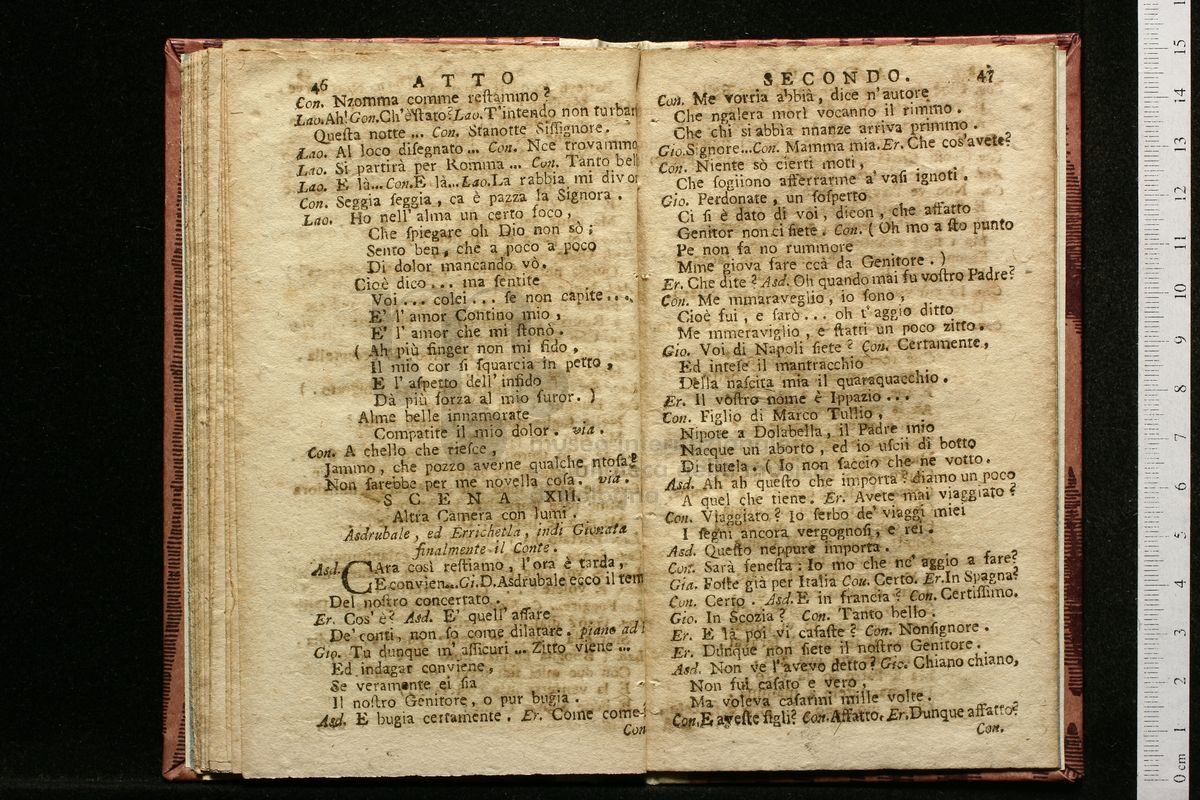 46 ATTO
Con. Nzomma comme reſtammo?
Lao. Ah! Gon. Ch'è ſtato? Lao. T'intendo non turbar
Queſta notte ... Con. Stanotte Siſſignore.
Lao. Al loco diſegnato ... Con. Nce trovammo
Lao. Si partirà per Romma ... Con. Tanto bell
Lao. E là... Con. E là... Lao. La rabbia mi divor
Con. Seggia ſeggia, ca è pazza ſa Signora.
Lao. Ho nell' alma un certo foco,
Che ſpiegare oh Dio non sò;
Sento ben, che a poco a poco
Di dolor mancando vò.
Cioè dico ... ma ſentite
Voi ... colei ... ſe non capite ...
E' l' amor Contino mio,
E' l' amor che mi ſtonò.
( Ah più finger non mi fido,
Il mio cor ſi ſquarcia in petto,
E l' aſpetto dell' infido
Dà più forza al mio furor. )
Alme belle innamorate
Compatite il mio dolor. via.
Con. A chello che rieſce,
Jammo, che pozzo averne qualche ntoſa?
Non ſarebbe per me novella coſa. via.
SCENA XIII.
Altra Camera con lumi.
Asdrubale, ed Errichetta, indi Gionata
finalmente il Conte.
Asd. CAra così reſtiamo, l'ora è tarda,
E convien... Gi. D. Asdrubale ecco il tem
Del noſtro concertato.
Er. Cos' è? Asd. E' quell' affare
De' conti, non ſo come dilatare. piano ad
Gio. Tu dunque m' aſſicuri ... Zitto viene ...
Ed indagar conviene,
Se veramente ei ſia
Il noſtro Genitore, o pur bugia.
Asd. E bugia certamente. Er. Come come
Con
SECONDO. 47
Con. Me vorria abbià, dice n'autore
Che ngalera morì vocanno il rimmo.
Che chi si abbìa nnanze arriva primmo.
Gio. Signore... Con. Mamma mia. Er. Che cos'avete?
Con. Niente sò cierti moti,
Che ſogliono afferrarme a' vaſi ignoti.
Gio. Perdonate, un ſoſpetto
Ci ſi è dato di voi, dicon, che affatto
Genitor non ci ſiete. Con. ( Oh mo a ſto punto
Pe non fa no rummore
Mme giova fare ccà da Genitore. )
Er. Che dite? Asd. Oh quando mai fu voſtro Padre?
Con. Me mmaraveglio, io ſono,
Cioè fui, e ſarò ... oh t' aggio ditto
Me mmeraviglio, e ſtatti un poco zitto.
Gio. Voi di Napoli ſiete? Con. Certamente,
Ed inteſe il mantracchio
Della naſcita mia il quaraquacchio.
Er. Il voſtro nome è Ippazio ...
Con. Figlio di Marco Tullio,
Nipote a Dolabella, il Padre mio
Nacque un aborto, ed io uſcii di botto
Di tutela. ( Io non ſaccio che ne votto.
Asd. Ah ah queſto che importa? diamo un poco
A quel che tiene. Er. Avete mai viaggiato?
Con. Viaggiato? Io ſerbo de' viaggi miei
I ſegni ancora vergognoſi, e rei.
Asd. Queſto neppure importa.
Con. Sarà feneſta: Io mo che nc' aggio a fare?
Gia. Foſte già per Italia Cou. Certo. Er. In Spagna?
Con. Certo. Asd. E in francia? Con. Certiſſimo.
Gio. In Scozia? Con. Tanto bello.
Er. E là poi vi caſaſte? Con. Nonſignore.
Er. Dunque non ſiete il noſtro Genitore.
Asd. Non ve l'avevo detto? Gio. Chiano chiano,
Non fui caſato e vero,
Ma voleva caſarmi mille volte.
Con. E aveſte figli? Con. Affatto. Er. Dunque affatto?
Con.